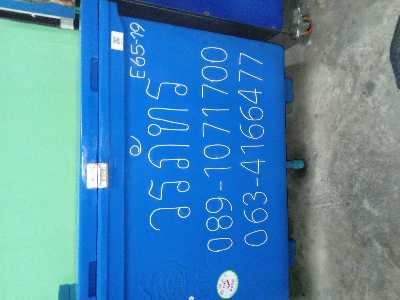 E65-19
วรภัทร
089-1071700
063-4166477